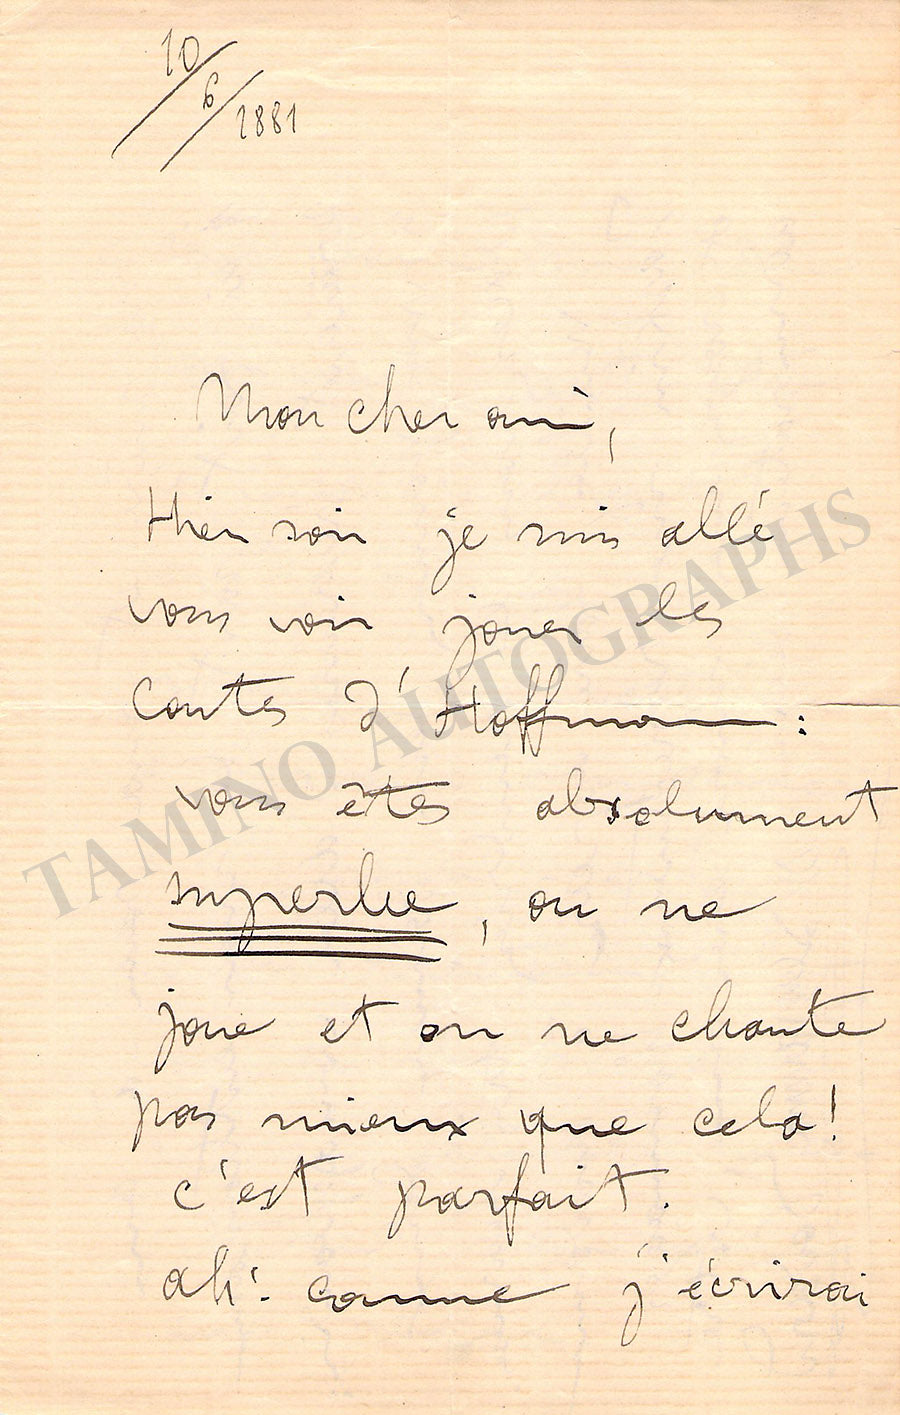 10/6/1881
Mon cher ami,
Hier soir je suis allé
vous voir jouer les
Contes d'Hoffmann :
vous êtes absolument
superbe, on ne
joue et on ne chante
pas mieux que cela!
c'est parfait.
Ah! comme j'écrirai
TAMINO AUTOGRAPHS